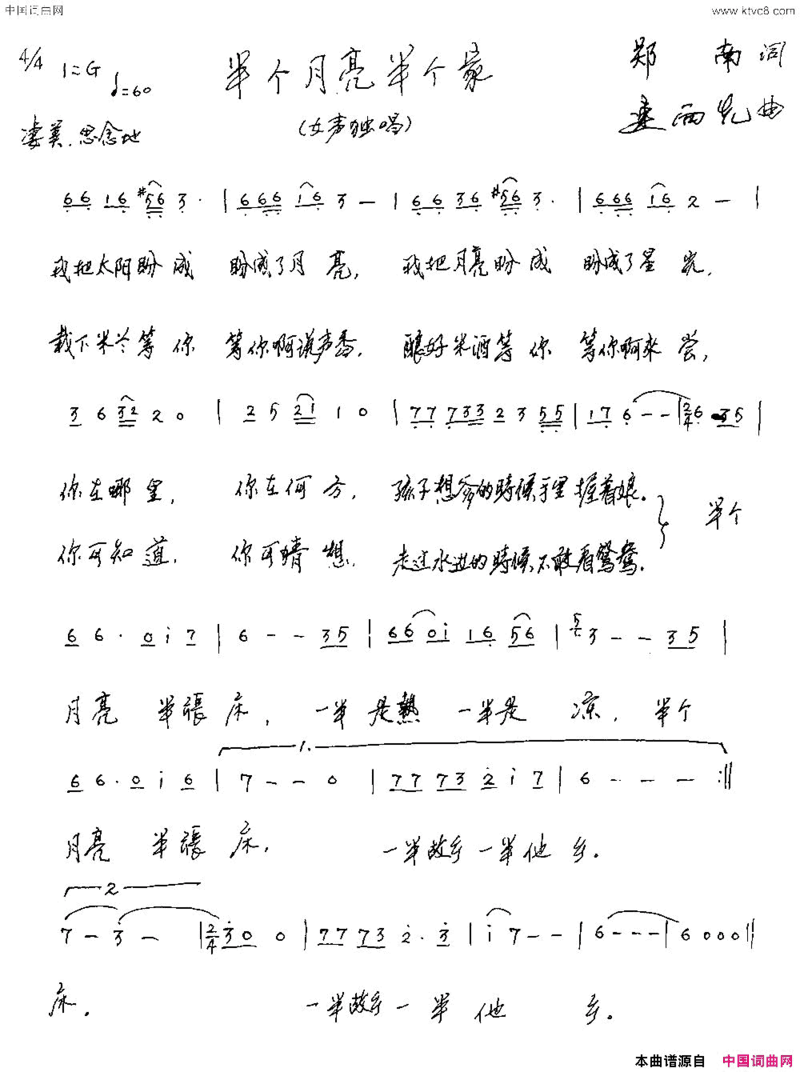 中国词曲网
www.ktvc8.com
4/4 1=G ♩=60
半个月亮半个家
(女声独唱)
郑南词
曲
凄美.思念地
66 16 #56 3· | 666 16 3 — | 66 36 #56 3· | 666 16 2 — |
我把太阳盼成 盼成了月亮, 我把月亮盼成 盼成了星光,
栽下米兰等你 等你啊说声香, 酿好米酒等你 等你啊来尝,
3 6 32 2 0 | 2 5 21 1 0 | 77 733 2 3 55 | 17 6 - - | 2/4 6 35 |
你在哪里, 你在何方, 孩子想爹的時候手里握着娘。
半个
你可知道, 你可猜想, 走过水边的時候,不敢看鸳鸯.
6 6· 0 i 7 | 6 - - 35 | 66 0i 16 56 | 5 3 - - 35 |
月亮 半張床, 一半是熱 一半是凉, 半个
1.
6 6· 0 i 6 | 7 - - 0 | 77 73 2 i 7 | 6 - - - :||
月亮 半張床, 一半故乡一半他乡.
2
7 - 3 - | 2/4 3 0 0 | 77 73 2· 3 | i 7 - - | 6 - - - | 6 0 0 0 ||
床. 一半故乡一半他乡.
本曲谱源自 中国词曲网